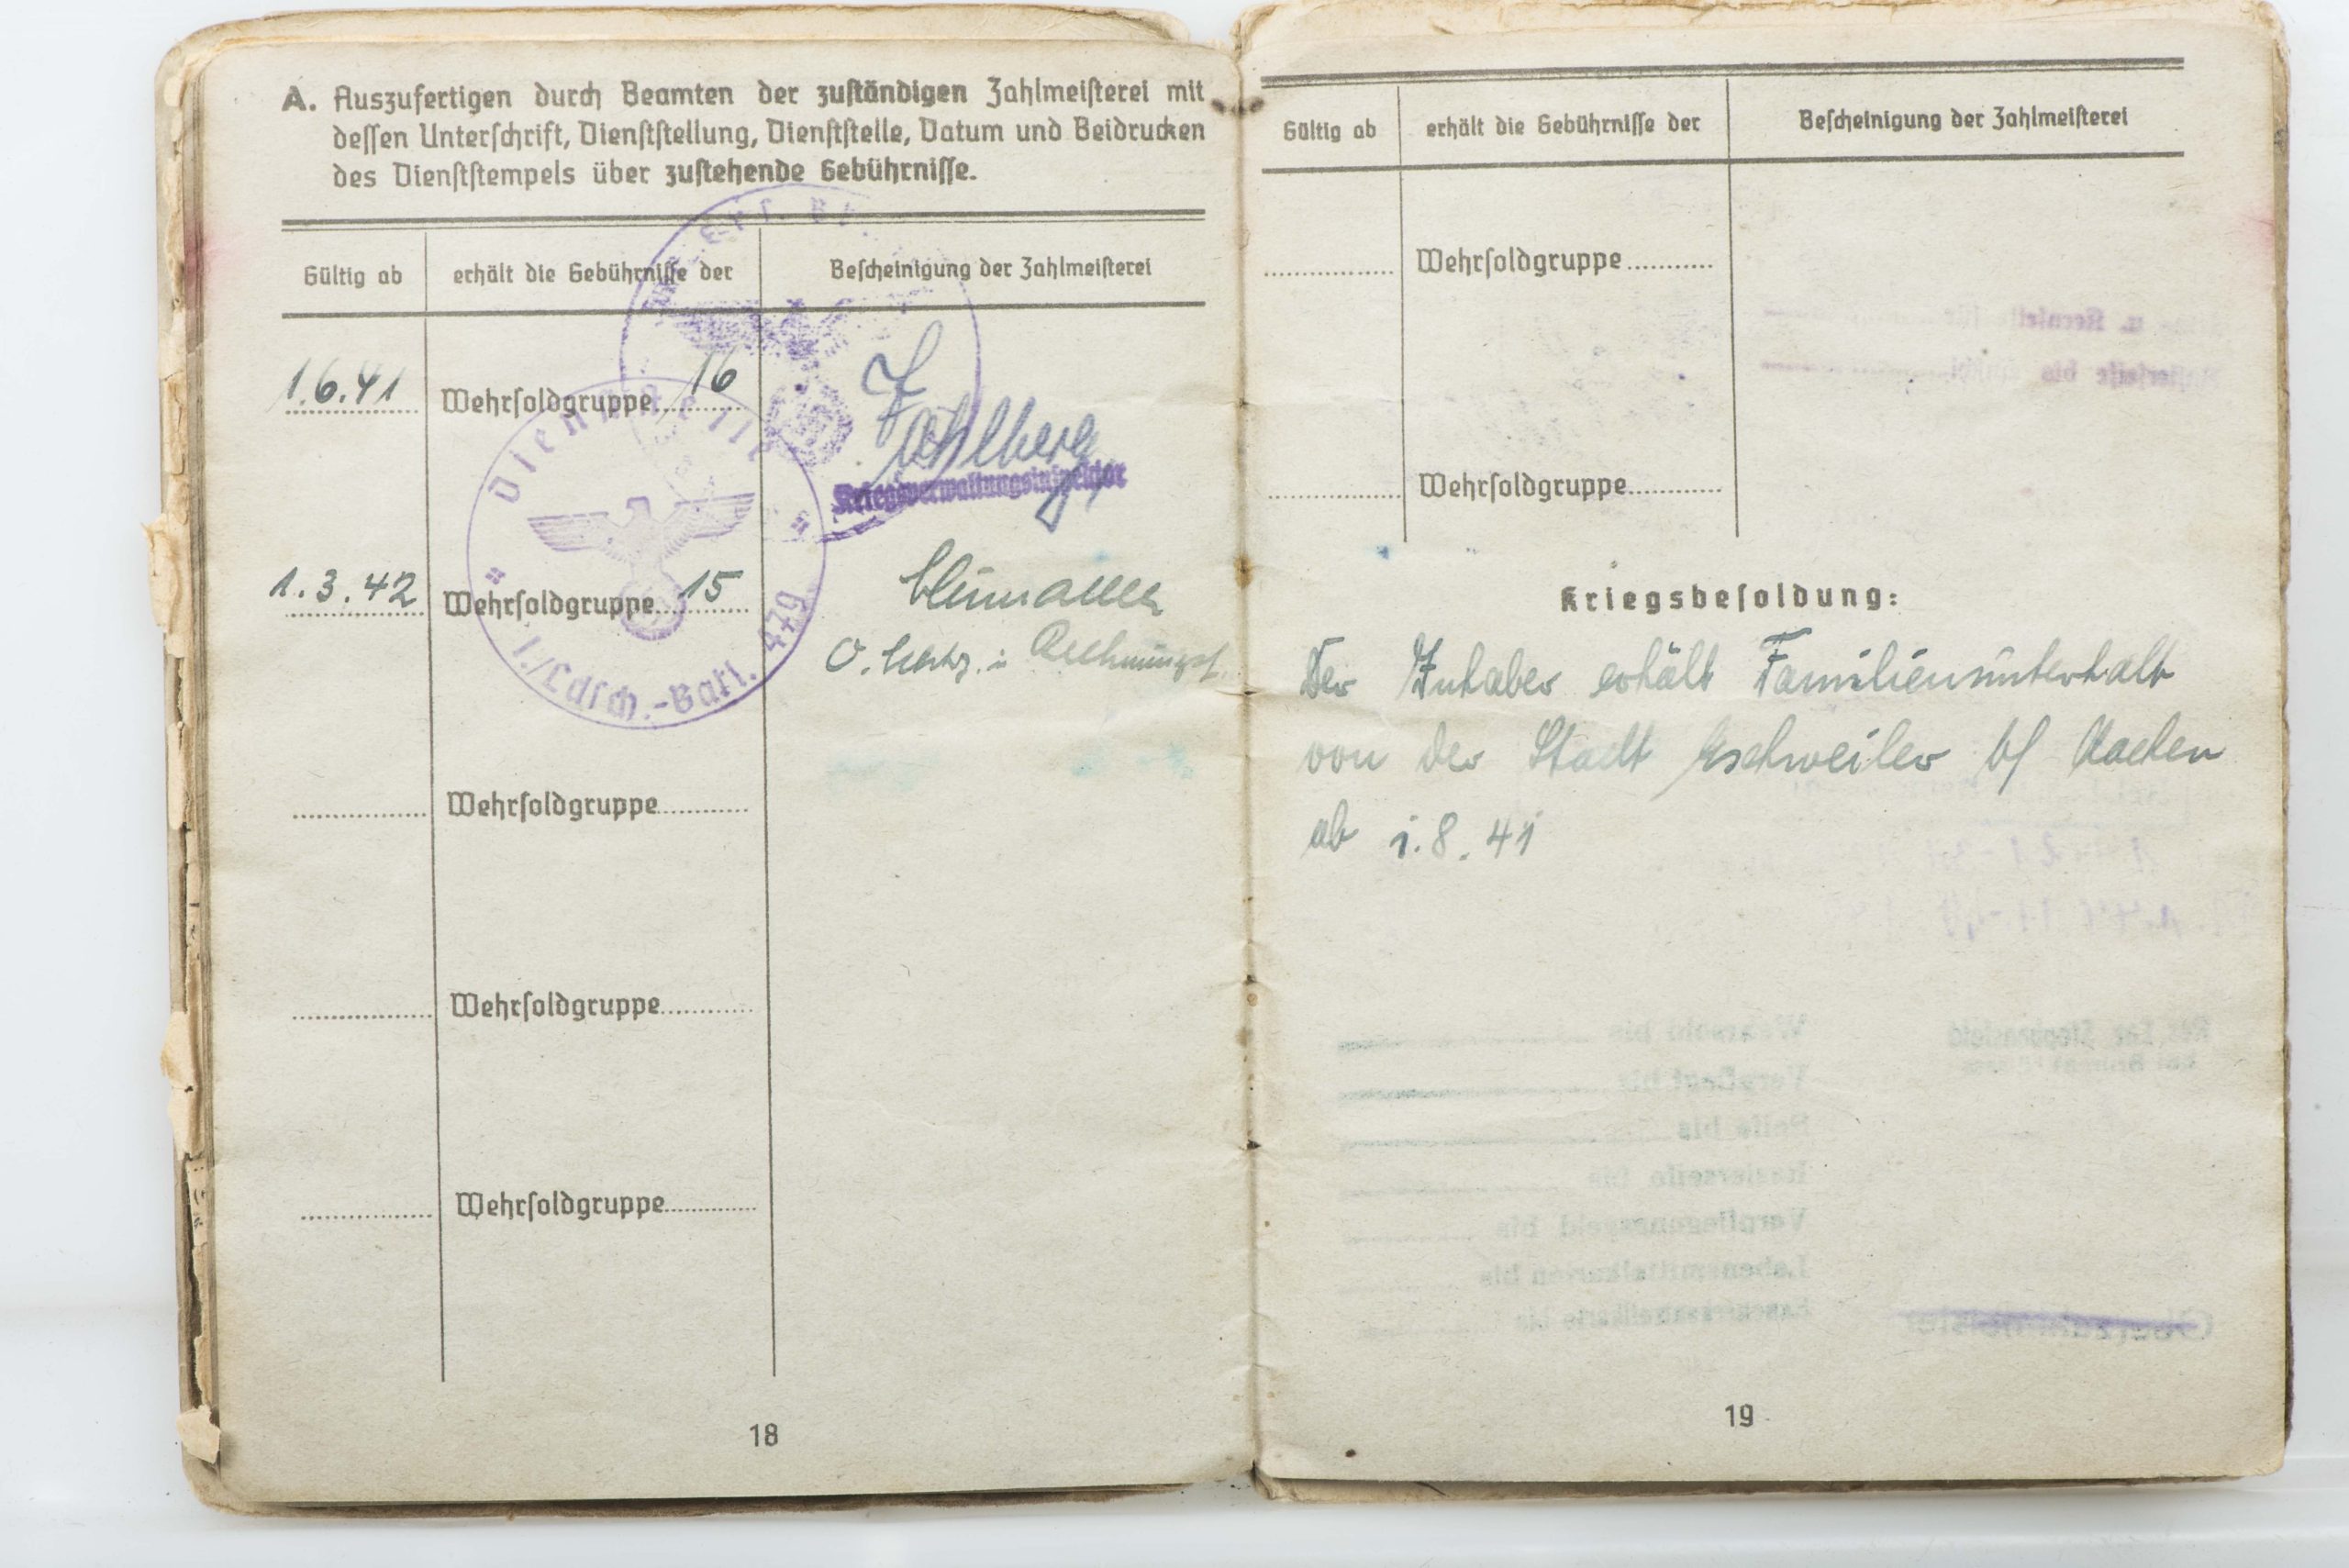 A. Auszufertigen durch Beamten der zuständigen Zahlmeisterei mit
dessen Unterschrift, Dienststellung, Dienststelle, Datum und Beidrucken
des Dienststempels über zustehende Gebührnisse.
Gültig ab erhält die Gebührnisse der Bescheinigung der Zahlmeisterei
1.6.41 Wehrsoldgruppe 16
Kriegsverwaltungsinspektor
Dienststelle
1.3.42 Wehrsoldgruppe 15
1./Ldsch.-Batl. 479
Wehrsoldgruppe
Wehrsoldgruppe
Wehrsoldgruppe
18
Gültig ab erhält die Gebührnisse der Bescheinigung der Zahlmeisterei
Wehrsoldgruppe
Wehrsoldgruppe
Kriegsbesoldung:
Der Inhaber erhält Familienunterhalt
von der Stadt Eschweiler b/ Aachen
ab 1.8.41
19